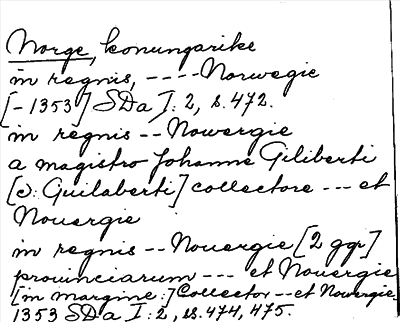 Norge, konungarike
in regnis, ---- Norwegie
[-1353] SDa I:2, s. 472.
in regnis -- Nowergie
a magistro Johanne Giliberti
[ɔ: Guilaberti] collectore --- et
Nouergie
in regnis -- Nouergie [2 ggr]
prouinciarum --- et Nouergie
[in margine:] Collector -- et Nowergie.
1353 SDa I:2, ss. 474, 475.